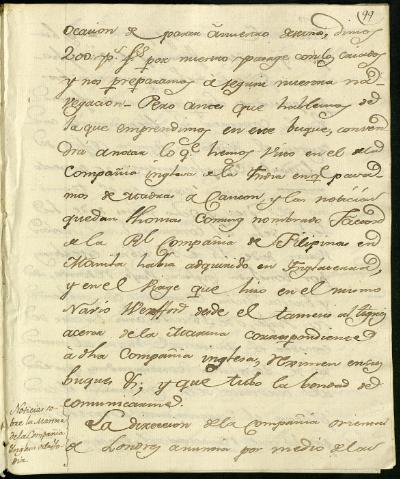 99
ocasion de pasar á nuestro destino, dimos
200 p.s f.s por nuestro pasage con los criados
y nos preparamos á seguir nuestra na-
vegacion. Pero antes que hablemos de
la que emprendimos en este buque, conven
drá anotar lo q.e hemos visto en el de la
Compañia inglesa de la India en q.e pasa-
mos de Madras á Canton, y las noticias
que dn Thomas Coming nombrado Factor
de la Rl Compañia de Filipinas en
Manila habia adquirido en Inglaterra,
y en el viage que hizo en el mismo
Navio desde el Tamesis al Tigris
acerca de la Marina correspondiente
á dha Compañia inglesa, regimen en sus
buques &, y que tubo la bondad de
comunicarme.
Noticias so-
bre la Marina
de la Compañia
Inglesa de la In-
dia.
La Direccion de la Compañia oriental
de Londres anuncia por medio de las